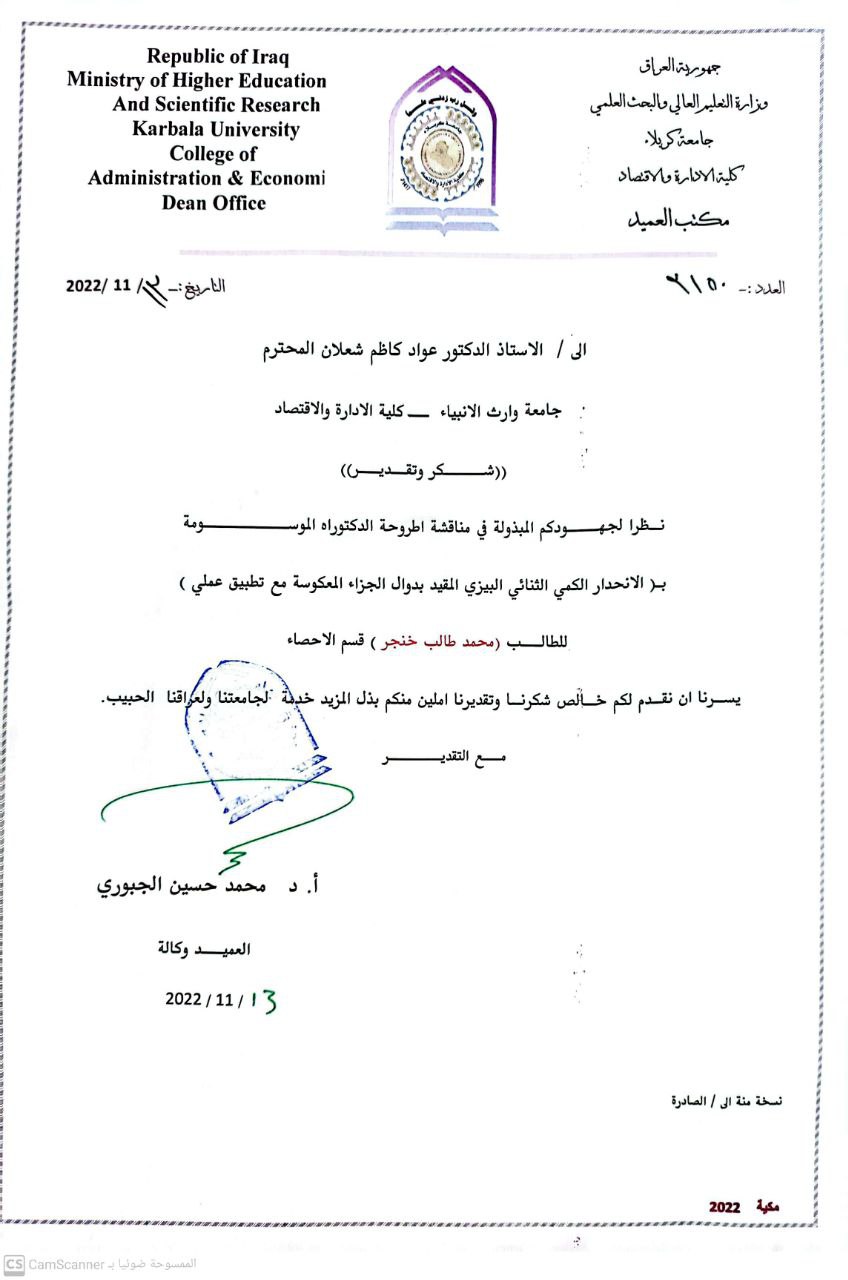 Republic of Iraq
Ministry of Higher Education
And Scientific Research
Karbala University
College of
Administration & Economi
Dean Office
جمهورية العراق
وزارة التعليم العالي والبحث العلمي
جامعة كربلاء
كلية الادارة والاقتصاد
مكتب العميد
وقل رب زدني علما
العدد :- ٣١٥٠
التاريخ :- ١٣/ 11 /2022
الى / الاستاذ الدكتور عواد كاظم شعلان المحترم
جامعة وارث الانبياء ــ كلية الادارة والاقتصاد
((شـــــكر وتقديـــر))
نــظرا لجهـــودكم المبذولة في مناقشة اطروحة الدكتوراه الموســـــــــــومة
بـ( الانحدار الكمي الثنائي البيزي المقيد بدوال الجزاء المعكوسة مع تطبيق عملي )
للطالـــب (محمد طالب خنجر ) قسم الاحصاء
يســرنا ان نقــدم لكم خــالص شكرنــا وتقديرنا املين منكم بذل المزيد خدمة لجامعتنا ولعراقنا الحبيب.
مـــع التقديــــــــــر
أ. د محمد حسين الجبوري
العميـــد وكالة
13 / 11 / 2022
نسخة منة الى / الصادرة
مكية 2022
CS CamScanner المسوحة ضوئيا بـ